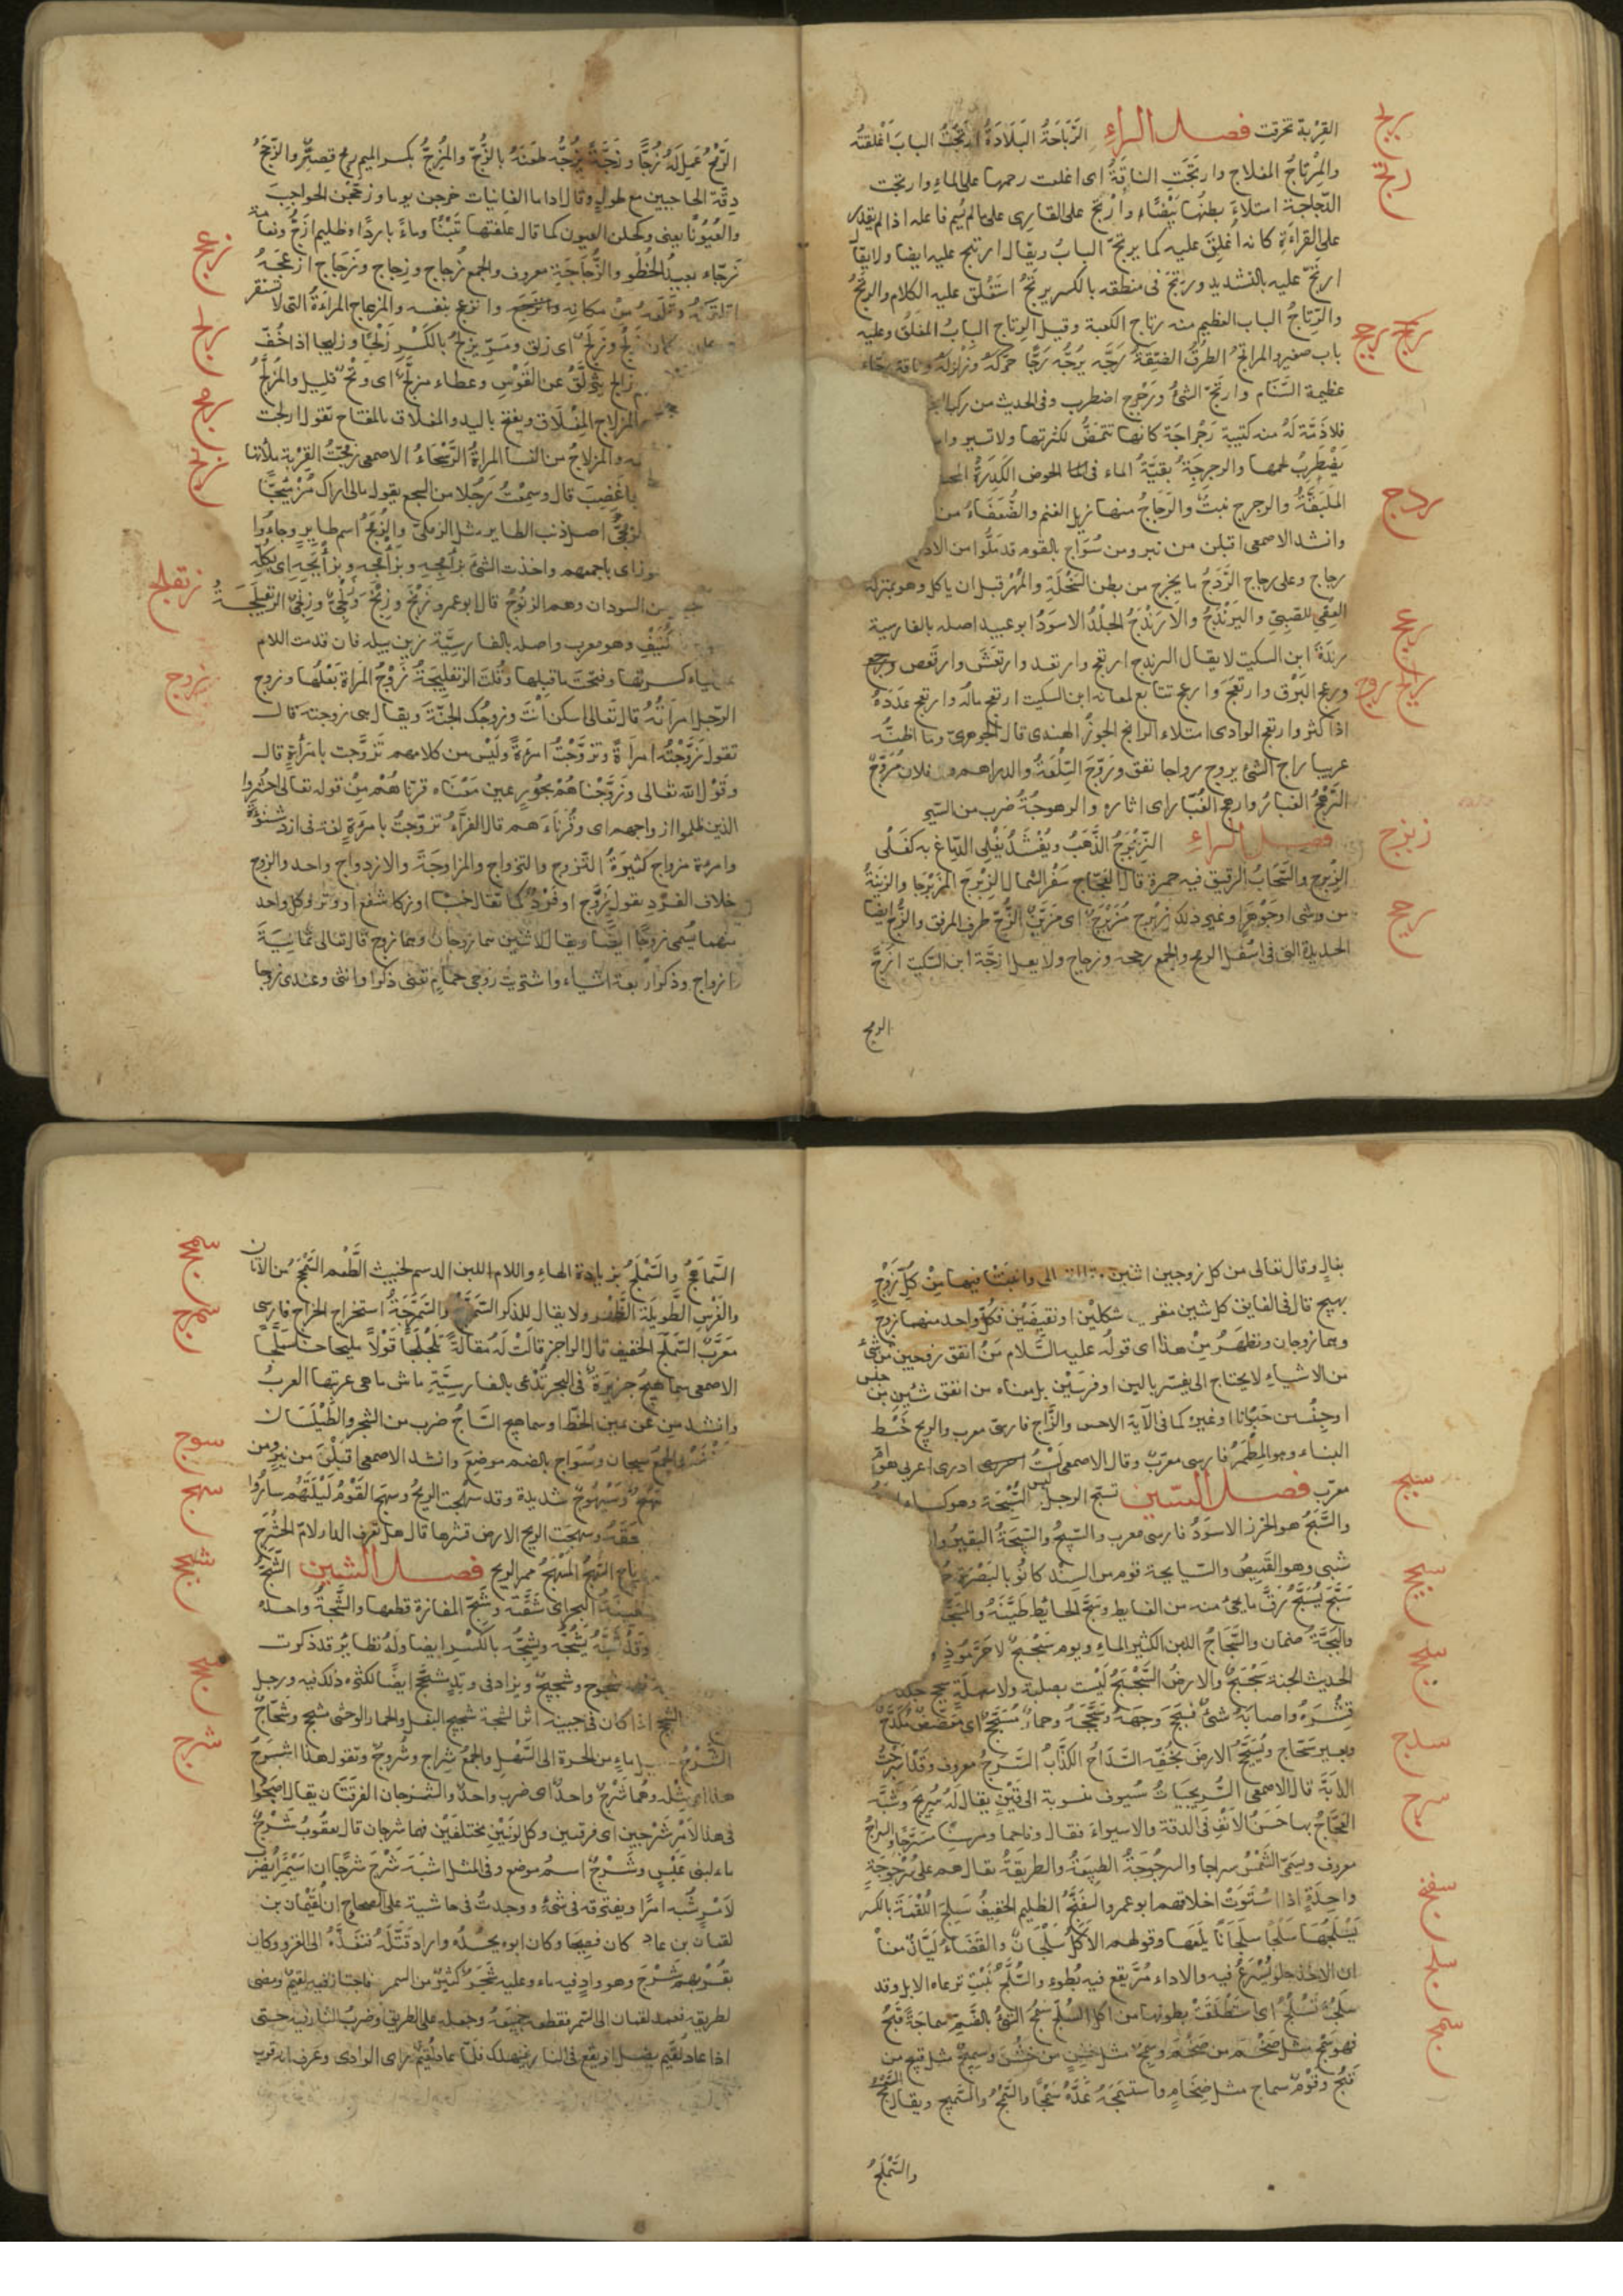 القربة تخرقت فصل الراء الرَّبَاجَةُ البَلَادَةُ ارتَجْتُ البابَ اَغْلقتُه
والمِرْتاجُ المغلاج وارتَجَتِ الناقةُ اى اغلقت رحمها على الماءِ وارتجت
الدّجاجة امتلاءَ بطنُها بَيْضًا وأرْتج على القارِى على مالم يُسم فاعله اذا لم يقدر
على القراءَةِ كانه اُغلِقَ عليه كما يرتج البابُ ويقال ارتتج عليه ايضا ولا يقال
ارتَجّ عليه بالتشديد ورَتِجَ فى منطقه بالكسر يرتَجُ استَغْلق عليه الكلام والرتجُ
والرِّتاجُ الباب العظيم منه رتاج الكعبة وقيل الرِتاج البابُ المغلَقُ وعليه
باب صغير والمراتجُ الطُرُقُ الضَيّقةُ رَجَّه يرُجُّه رَجًّا حرّكَهُ وزَلْزَلَهُ وناقة رجّاء
عظيمة السَّنَام وارتجّ الشئُ وترَجْرج اضطرب وفى الحديث من ركب
فلا ذمّة لَهُ منه كتيبة رَجْراجَة كانها تتمخَّضُ لكثرتها ولا تسير
يَضْطرِبُ لحمها والرجرِجَةُ بقيَّةُ الماء فى الحوض الكَدِرَةُ
المَلَبَقَّةُ والرجرج نبتٌ والرَّجاجُ مهازيل الغنم والضُّعَفَاءُ من
وانشد الاصمعى اقبلن من نيرومن سُوَاج بالقوم قد مَلُّوا من الادلاج
رجاج وعلى رجاج الرَّدَجُ ما يخرج من بطن السَّخْلَةِ والمُهْرِ قبل ان ياكل وهو بمنزلة
العِقْىِ للصَبىِّ واليَرَنْدَجُ والارَنْدَجُ الجِلْدُ الاسوَدُ ابو عبيد اصله بالفارسية
رنْدَهْ ابن السكيت لا يقال الرندج ارتعج وارتعد وارتعَشَ وارتَعَص
ورعج البَرْق وارتعَجَ وارعج تتابع لمعانه ابن السكيت ارتعج مالُه وارتعج عدَدُهُ
اذا كثر وارتعج الوادى امتلاء الرانج الجوزُ الهندى قال الجوهرىّ وما اظنُّه
عربيا راج الشئ يروج رواجا نفق وروّجَ السِّلْعَةَ والدراهم وفلان مُرَوِّجٌ
الرَّهْجُ الغبارُ وارهج الغُبَار اى اثاره والرهوجةُ ضرب من السّير
فصل الزاء الزِّبْرِجُ الذَّهَبُ ويُنْشَدُ يَغْلِى الدِّمَاغ به كَغَلْى
الزِبْرِجِ والسَّحَابُ الرقيق فيه حمرة قال العَجَّاج سَفْرَ الشمال الزِّبْرِجَ المزَبْرَجا والزينَةُ
من وشى او جَوْهَرٍ او غير ذلك زِبْرج مُزَبْرَج اى مُزَيَّن الزُّجّ طرف المرفق والزّجُّ ايضا
الحديدة التى فى اسْفَل الرمح والجمع زججه وزجاج ولا يقل ازجّة ابن السكيت ازجَّ
الرمح
الرُّمْحُ عَمِل لَهُ زُجًّا وزَجَّهُ يَزُجُّه طعَنَهُ بالزُجّ والمِزَجُّ بكسر الميم رمح قصِيْرٌ والزَّجَجُ
دِقَّة الحاجبين مع طولٍ وقال اذا ما الغانيات خرجن يوما وزجّجن الحواجِبَ
والعُيُوْنَا يعنى وكحلن العيون كما قال علفتها تِبْنًا وماءً باردًا وظليم ازَجُّ ونعامة
زجّاء بعيدُ الخُطْو والزُّجَاجَةِ معروف والجمع زُجاج وزِجاج وزَجاج ازعَجَهُ
اقلَقَهُ وقَلَعَهُ من مكانه وانزعج بنفسه والمزعاج المراةُ التى لا تستقر
زَلْجٌ وزَلِجٌ اى زلق ومَرّ يزلِجُ بالكَسْرِ زَلْجًا وزليجا اذا خفّ
زالج يتزلَّقُ عن القَوْسِ وعطاء مزلَّج اى وَتْحٌ قليل والمُزَلَّجُ
والمزلاج المِغْلَاق ويفتح باليد والمغلاق بالمفتاح تقول ازلجت
والمزلاجُ من النسا المراةُ الرَّسْحَاءُ الاصمعى زمجْتُ القِرْبة ملأتها
غَضِبَ قال وسمِعْتُ رَجُلا من اشجع يقول مالى اراك مُزْمَئِجًّا
الزمجَّى اصل ذنب الطاير مثل الزمكّى والزُمّجُ اسم طاير وجاءُوا
اى باجمعهم واخذت الشئَ بزأمجِهِ وبزأمجه وبزأبَجِهِ اى بكلّه
من السودان وهم الزنوجُ قال ابو عمرو زَنْجٌ وزِنْجٌ وزَنْجِىٌّ وزِنْجِىٌّ الزنفيلَجَةُ
كِنْف وهو معرب واصله بالفارسيَّة زين بيله فان قدمت اللام
على الياء كسرتها وفتحْتَ ماقبلها وقُلتَ الزنفَلِيجَةُ زَوْجُ المراة بَعْلُها وزوج
الرّجل امرَاتُهُ قال تَعَالى اسكن انتَ وزوجُك الجنّةَ ويقال هى زوجته قال
تقول زَوّجْتُه امراةً وتزوّجْتُ امْرَةً ولَيْسَ من كلامهم تَزوّجت بامرأةٍ قال
وقَوْل اللّٰه تعالى وزوَّجْناهُمْ بحُوْرٍ عين مَعْنَاه قرنّاهُمْ مِنْ قوله تعالى احْشُرُوا
الذين ظلموا ازواجهم اى وقُرَنَاءَهم قال الفرّاءُ تزوّجتُ بامرَءَةٍ لغة فى ازد شنُوْءَةَ
وامرءَة مزواج كثيرة التّزوج والتّزاوج والمزاوجَة والازدواج واحد والزوج
خلاف الفَرْدِ يقول زَوْج او فَرْد كما يقال خسا او زكا شفع او وتر وكل واحد
منهما يُسمى زوجًا ايضًا ويقال للاثنين هما زوجان وهما زوج قال تعالى ثمانِيَةَ
ازواج وذكر اربعة اشياء واشتريت زوجى حمامٍ تعنى ذكرا وانثى وعندى زوجا
نِعالٍ وقال تعالى من كل زوجين اثنين وانبتنا فيها مِنْ كلّ زَوْجٍ
بهيج قال فى الفايق كل شيئين شكلين او نقيضَيْن فكلّ واحد منهما زوج
وهما زوجان ونظهَرُ مِنْ هذا اى قولُه عليه السَّلام مَنْ انفق زوجين من شئ
من الاشياء لا يحتاج الى يفسّر بالين او فرسَيْن بل معناه من انفق شيئين من جنس
او جِنْسين حَيَوانا او غيره كما فى الآية والزَّاج فارسىّ معرب والزيج خَيْط
البناء وهو المِطْمَرُ فارسى معرّب وقال الاصمعى لَسْتُ ادرى اعربى هو ام
معرّب فصل السين تسبّج الرجل لبس السُّبْجَة وهو كساء
والسَّبَجُ هو الخرز الاسوَدُ فارسى معرب والسّبيجُ والسَّبِيجَةُ البقيرُ
شبى وهو القَمِيصُ والسّيابجة قوم من السِنْد كانُوا بالبَصْرَة
سَجَّ يَسُجُّ رَقَّ ما يجئُ منه من الغايط وسَجَّ الحايطَ طَيَّنَهُ
والبَجَّةُ صنمان والسَّجَاجُ اللبن الكثير الماءِ ويوم سَجْسَجٌ لا حَرٌّ مُوذٍ
الحديث الجنة سَجْسَجٌ والارضُ السَّجْسَجُ لَيْسَت بصلبة ولا سهلة سحج جلده
قشَرَهُ واصابَهُ شئٌ فسَحَجَ وَجهَهُ وسَحَّجَهُ وحمارٌ مُسَحَّجٌ اى مُعَضَّضٌ مُكَدَّحٌ
وبعير سَحّاج يَسْحَجُ الارضَ بخُفّه السَّدَّاجُ الكذَّابُ السَّرْجُ معروف وقد اسْرَجْتُ
الدابّةَ قال الاصمعى السُّرَيجيّاتُ سُيوف منسوبة الى قَيْنٍ يقال لَهُ سُرَيج وشَبَّه
العَجّاجُ بها حُسْنَ الاَنْفِ فى الدقة والاستواءَ فقال وفاحما ومرسنا مسَرَّجًا والسراجُ
معروف ويسمّى الشَّمْسُ سراجا والسرجُوجَةُ الطبيعَةُ والطريقَةُ يقال هم على سُرْجُوجَةٍ
واحِدَةٍ اذا استَوَتْ اخلاقهم ابو عمرو السَّفَنَّجُ الظليم الخفيفُ سَلِجَ اللُقْمَةَ بالكسر
يَسْلَجُها سَلْجًا سَلَجَانًا بَلَعَها وقولهم الاكلُ سَلَجَانٌ والقَضَاءُ لَيَّانٌ معناه
ان الاخذ حلو يُسْرَعُ فيه والاداء مُرٌّ يقع فيه بُطوءٌ والسُّلَّجُ نَبْتٌ ترعاه الابل وقد
سَلَجَتْ تَسْلُجُ اى استَطْلَقَتْ بطونها من اكل السُّلَّج سَمُجَ الشئُ بالضّم سماجَةً قَبُحَ
فهو سَمْجٌ مثل ضَخُمَ من ضَخْم وسَمِجٌ مثل خَشِن من خَشُنَ وسَمِيْجٌ مثل قبيح من
قَبُحَ وقَوْمٌ سماج مثل ضِخَامٍ واستسْمَجَهُ عَدَّهُ سَمْجًا والسَّمْجُ والسّميج ويقال
والسَّمْلَجُ
السَّمَاهِجُ والسَّمْهَجُ بزيادة الهاءِ واللام اللبن الدسم الخبيث الطَّعم السَّمْحَجُ من الاتان
والفَرَسِ الطَّويلَة الظَّهْر ولا يقال للذكر السَّمَرَّجُ والسَّمَرَّجَةُ استخراج الخراج فارسى
معَرّبٌ السَّمَلَّجُ الخفيف قال الراجز قالت لَهُ مقالَةً تلَجْلَجَا قَوْلاً مليحا حسنا سَمَلَّجًا
الاصمعى سماهيج جزيرَةٌ فى البحر تُدْعى بالفارسيَّةِ ماش ماهى عربتها العربُ
وانشد مِن عَن يمين الخَطِّ او سماهيج السَّاجُ ضرب من الشجر والطَّيْلَسَان
الاخضر والجمع سيجان وسُوَاج بالضم موضع وانشد الاصمعى اَقبَلْنَ من نيرٍ ومن
سَيْهَجٌ وسَيْهُوجٌ شديدة وقد سهَجَت الريح وسَهَجَ القَوْمُ لَيْلَتَهُم سَارُوا
وسهجَت الريح الارض قشرها قال هل تعرف الدار لامّ الحشْرَج
المَسْهَجُ ممر الريح فصل الشين الشَّجّةُ
سفينة البحر اى شَقَّتْه وشجّ المفازة قطعها والشَّجَّةُ واحدة
وقد شَجَّهُ يَشُجُّه ويَشِجُّه بالكَسْرِ ايضا ولهُ نظايرُ قد ذكرت
مشجوج وشجيج ويزاد فى وتدٍ مشَجَّجٌ ايضًا لكثرة ذلك فيه ورجل
اشج اذا كان فى جبينه اثر الشّجة شحيج البغل والحمار الوحشى مشحج وشحّاجٌ
الشَّرْجُ مسيل ماءٍ من الحرة الى السَّهْل والجمعُ شِراج وشُرُوجٌ وتقول هذا شَرْجُ
هذا اى مِثْلُه وهُما شَرْجٌ واحدٌ اى ضرب واحدٌ والشرجان الفرقتان يقال اصبَحُوا
فى هذا الامْرِ شَرْجين اى فرقتين وكل لونَيْنِ مختلفَيْن فهما شرجان قال يعقُوبُ شَرْجٌ
ماء لبنى عَبْسٍ وشَرْجٌ اسمُ موضع وفى المثل اشبَهَ شَرْجٌ شَرْجًا ان اُسَيْمِرًا يُضْرَب
لامْرَيْن شُبِّه امرًا ويفترقه فى شئٍ ووجدتُ فى حاشية على الصحاح انّ لُقَيْمَان بن
لقمان بن عاد كان فصيحا وكان ابوه يحسُدُه واراد قَتْلَهُ فنفَذَهُ الى الغزو وكان
بقُرْبِهِم شَرْجٌ وهو وادٍ فيه ماء وعليه شَجَرٌ كثيرٌ من السمر فاجتاز فيه لقيم ومضى
لطريقه فعمد لقمان الى السّمُرِ فقطعه جميعَهُ وجعله على الطريق وضرب النار فيه حتى
اذا عاد لُقَيْم يضِل او يقع فى النار فيهلك فلمّا عاد لُقَيْمٌ راى الوادى وعرف انه قريب